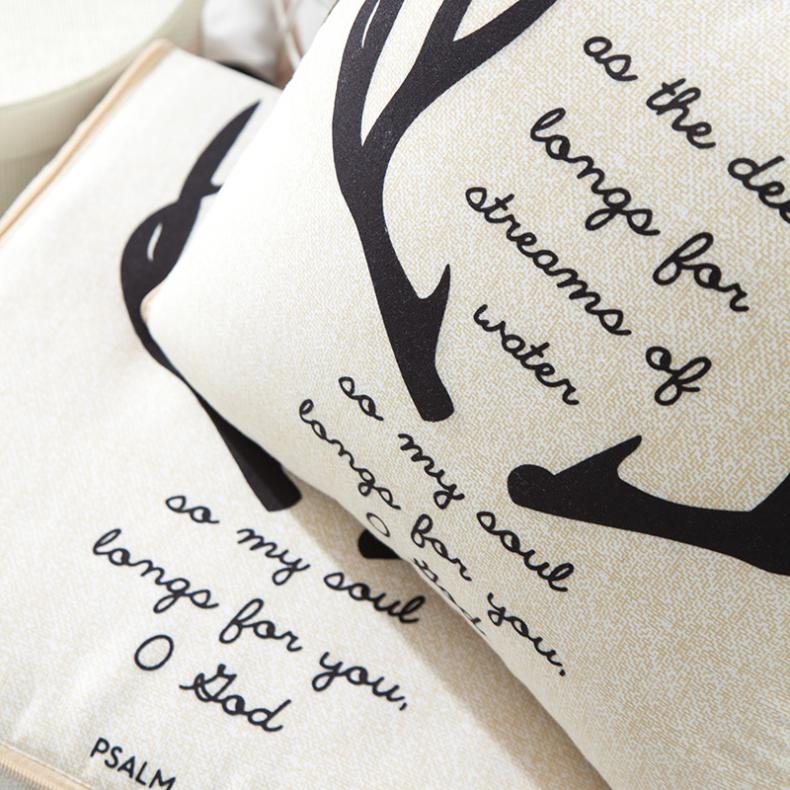 as the dee
longs for
streams of
water
so my soul
longs for you,
O God
so my soul
longs for you,
O God
PSALM